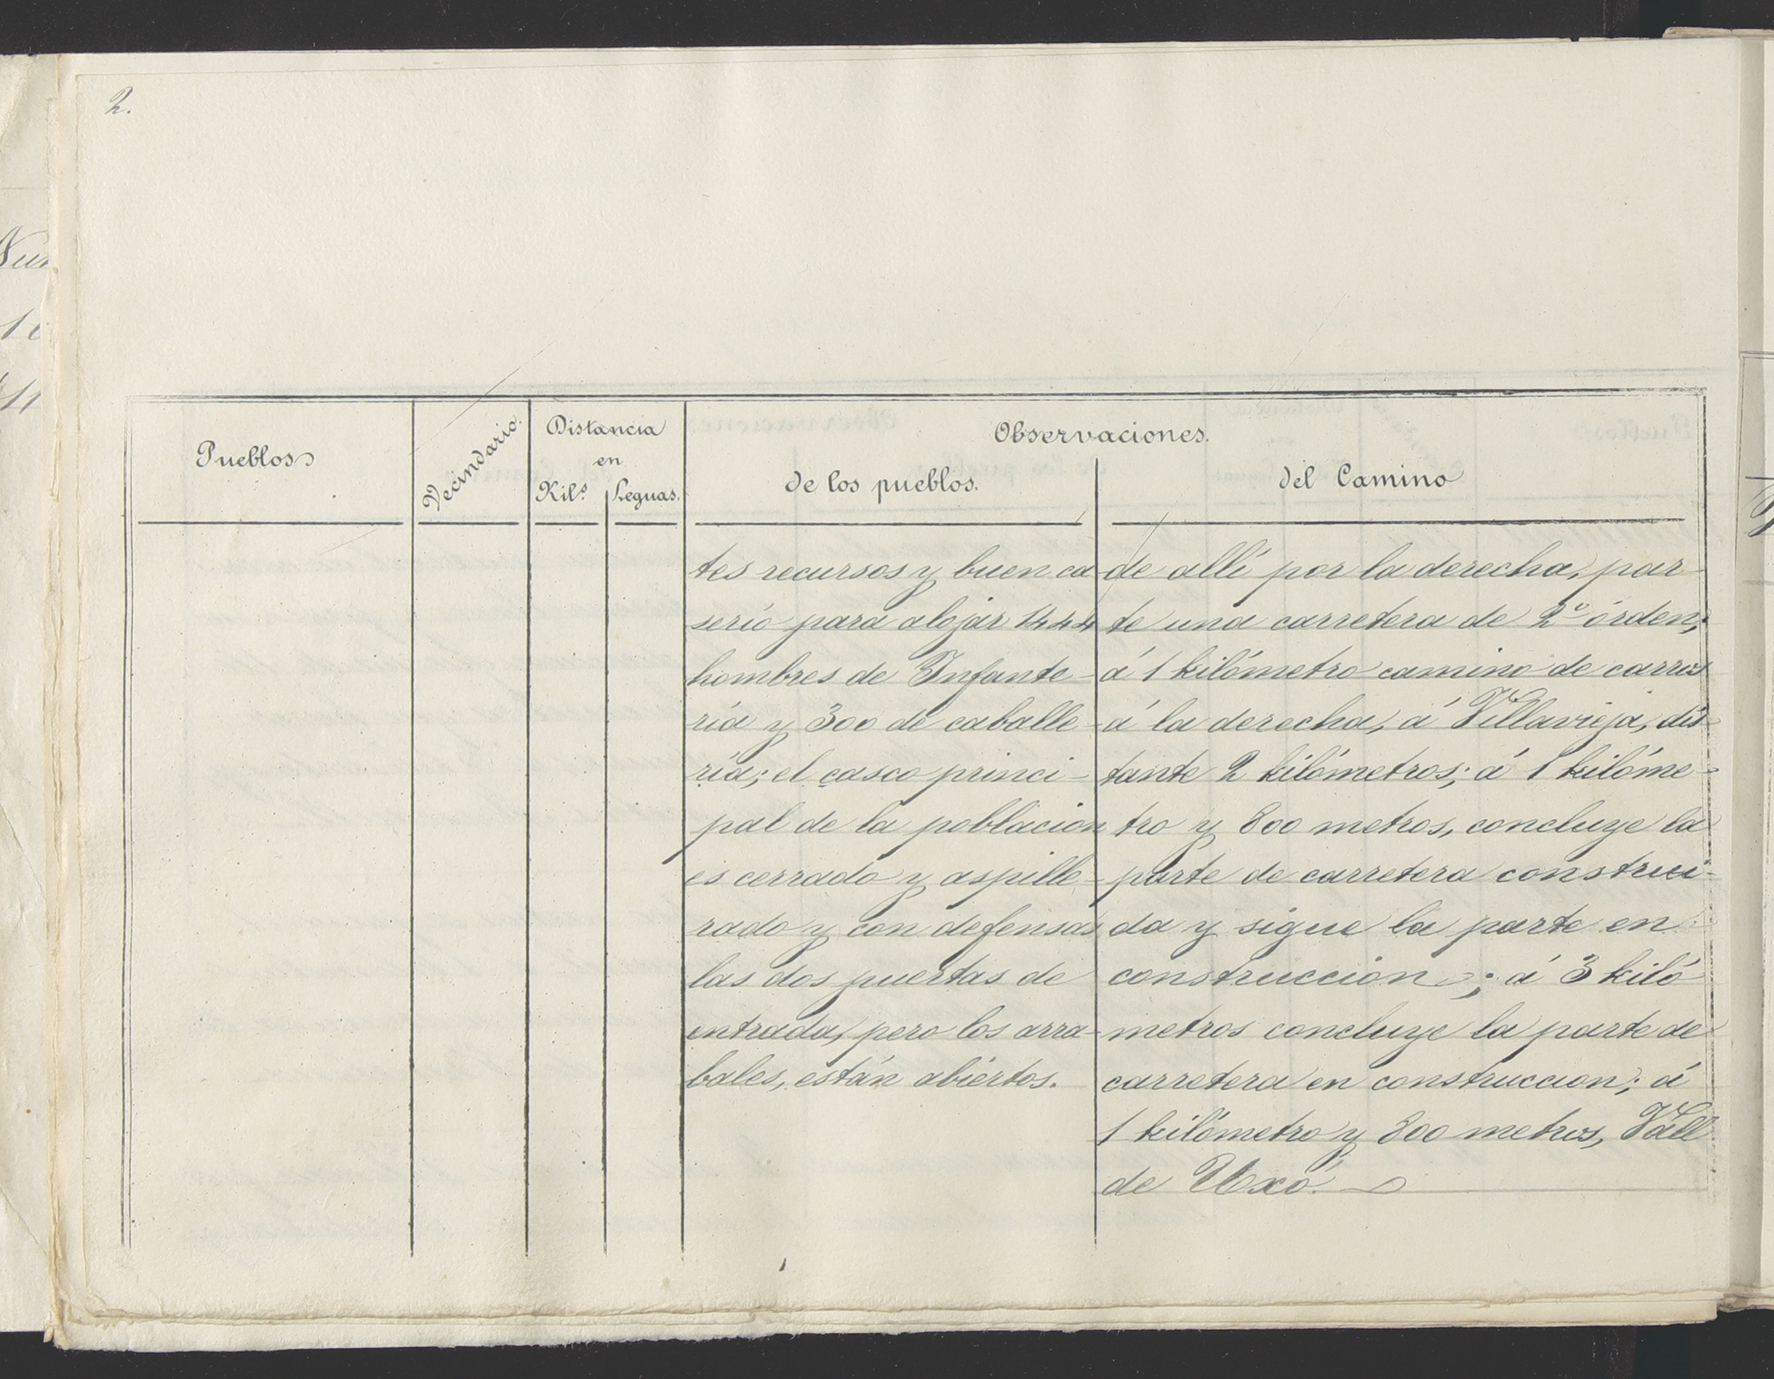 2.
Pueblos
Vecindario.
Distancia
en
Kilˢ
Leguas.
Observaciones.
de los pueblos.
del Camino
tes recursos y buen ca
serío para alojar 1444
hombres de Infante-
ría y 300 de caballe-
ría; el casco princi-
pal de la poblacion
es cerrado y aspille-
rado y con defensas
las dos puertas de
entrada, pero los arra-
bales, están abiertos.
de allí por la derecha, par-
te una carretera de 2º órden,
á 1 kilómetro camino de carros
á la derecha, á Villavieja, dis-
tante 2 kilómetros; á 1 kilóme-
tro y 800 metros, concluye la
parte de carretera construi-
da y sigue la parte en
construccion; á 3 kiló
metros concluye la parte de
carretera en construccion; á
1 kilómetro y 800 metros, Vall
de Uxó.